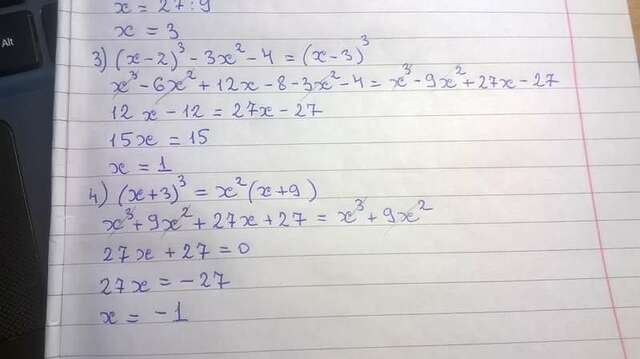 x = 27 : 9
x = 3
3) (x-2)³ - 3x² - 4 = (x-3)³
x³ - 6x² + 12x - 8 - 3x² - 4 = x³ - 9x² + 27x - 27
12x - 12 = 27x - 27
15x = 15
x = 1
4) (x+3)³ = x²(x+9)
x³ + 9x² + 27x + 27 = x³ + 9x²
27x + 27 = 0
27x = -27
x = -1
Alt